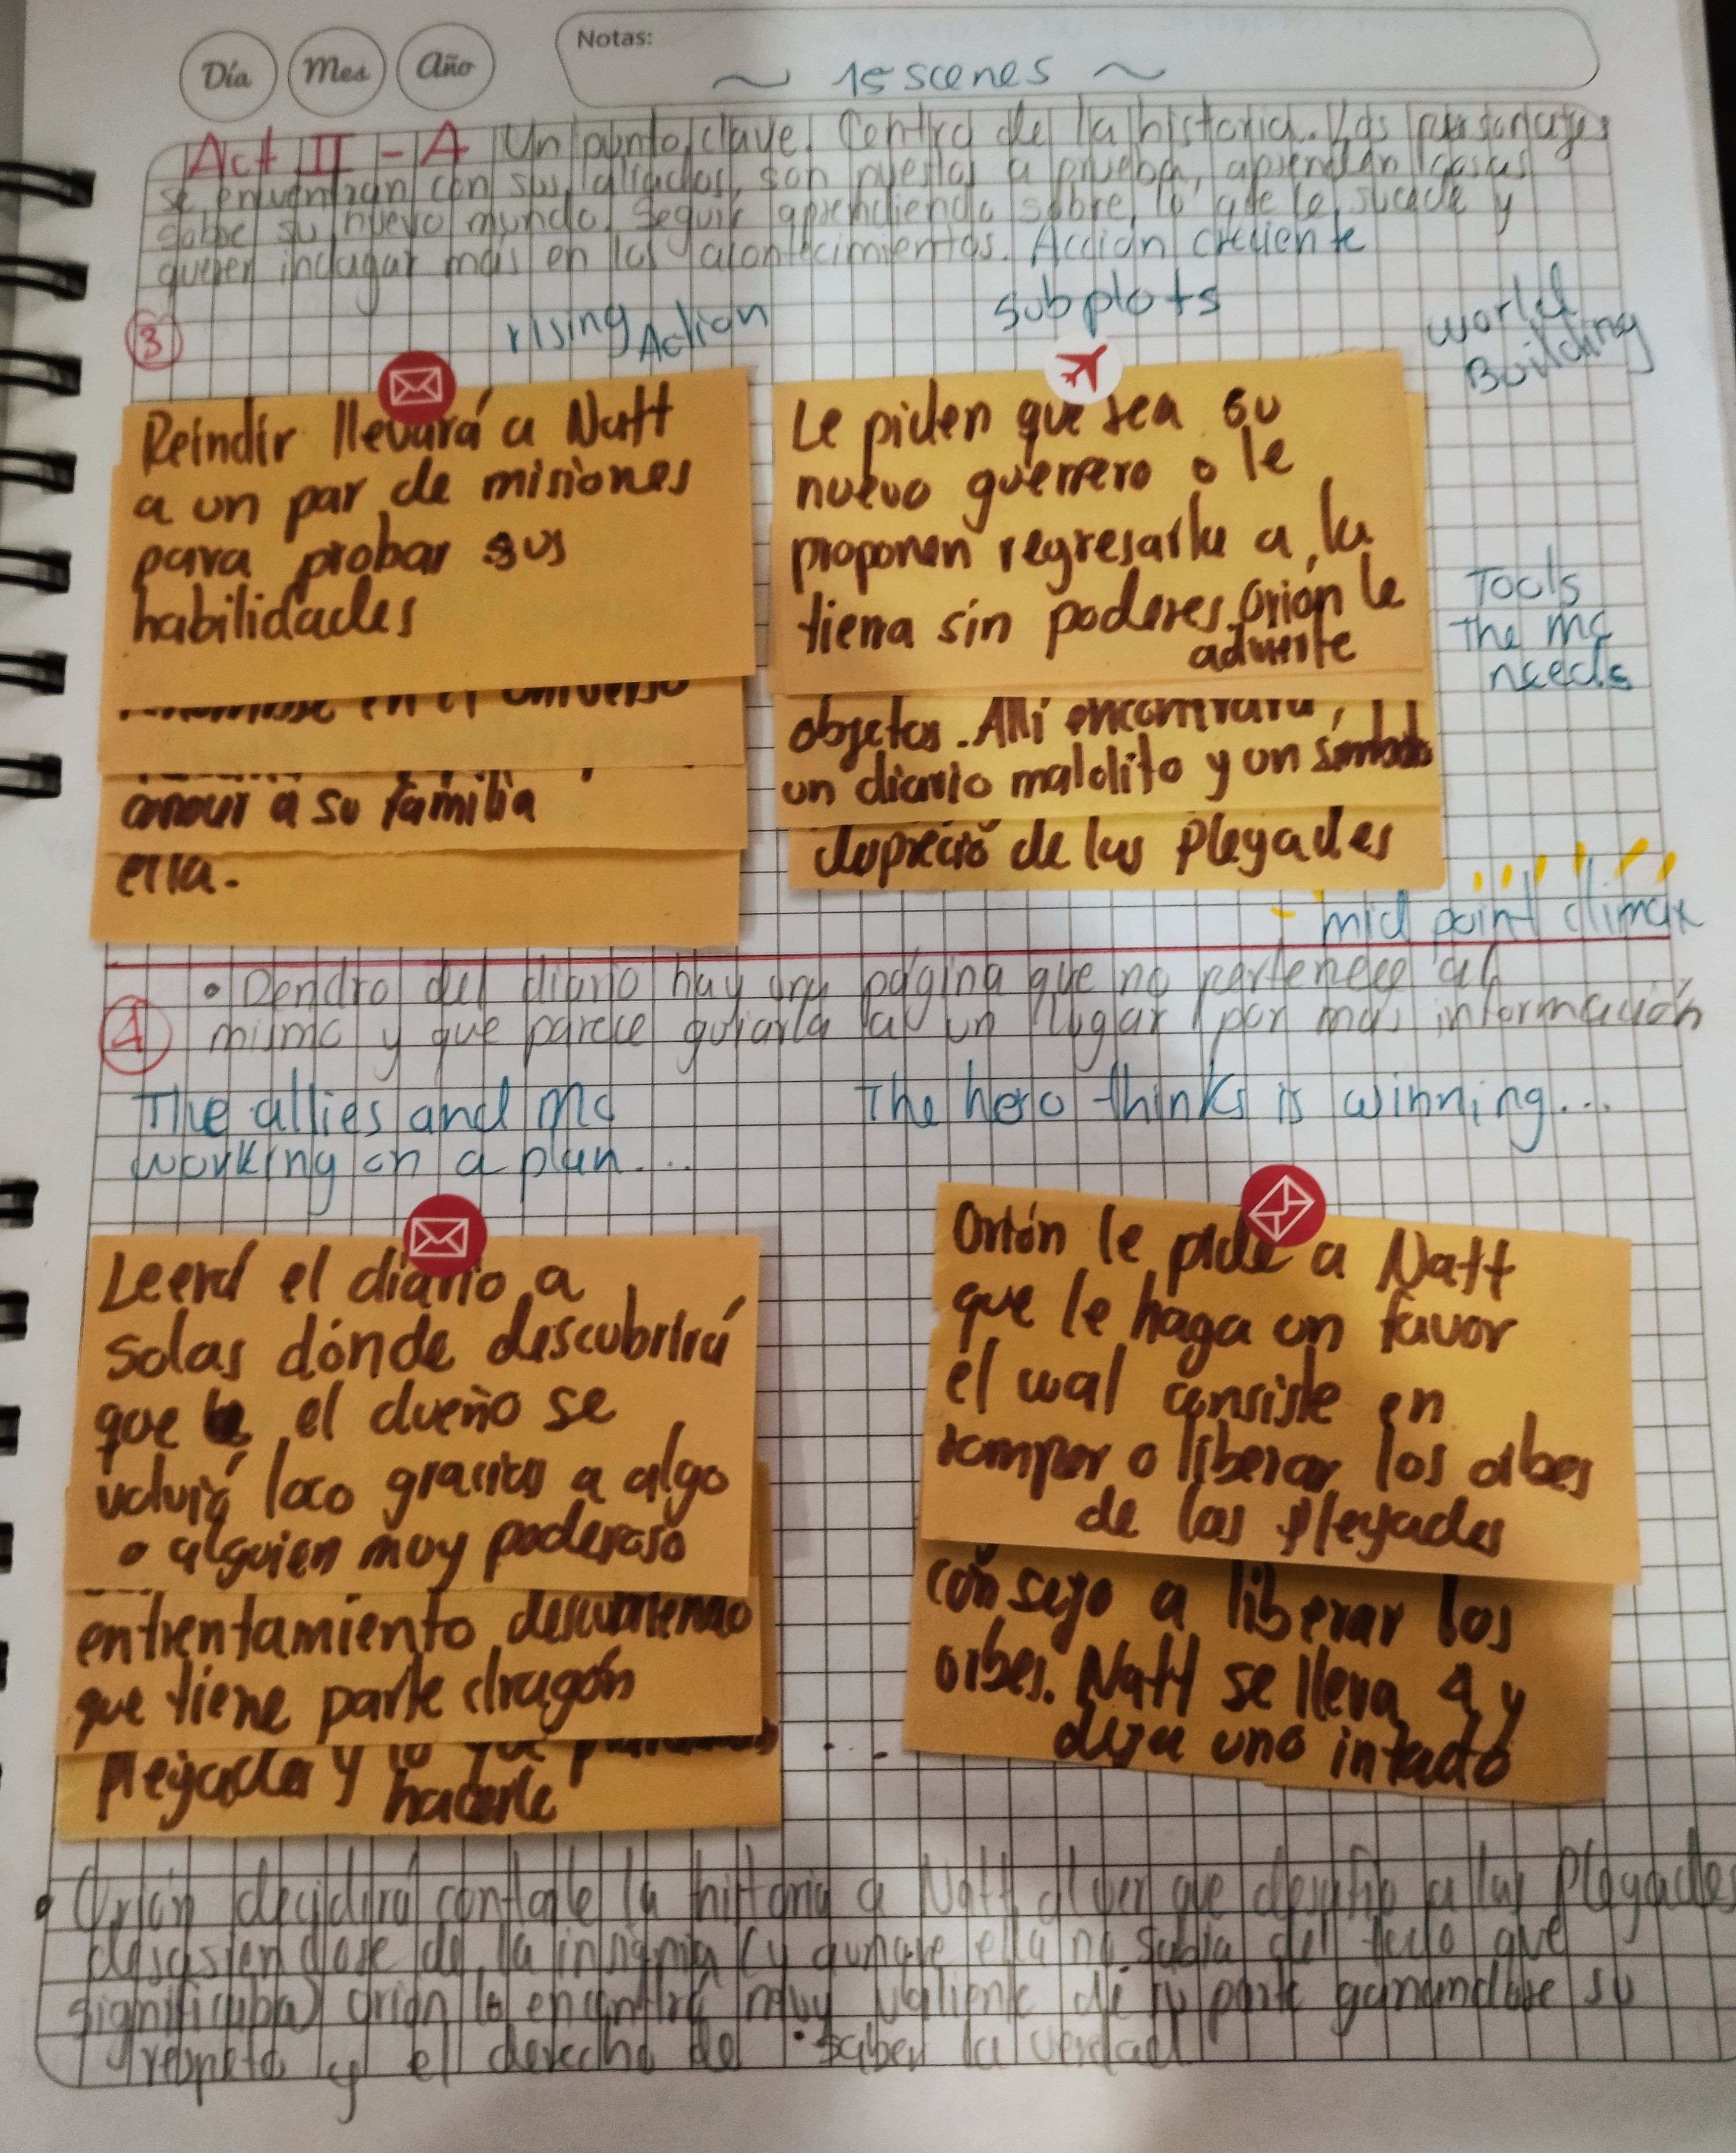 Día Mes Año
Notas:
~ 15 scenes ~
Act II - A Un punto clave. Centro de la historia. Los personajes
se encuentran con sus aliados, son puestos a prueba, aprenden cosas
sobre su nuevo mundo. Seguir aprendiendo sobre lo que le sucede y
querer indagar más en los acontecimientos. Acción creciente
3
rising Action
subplots
world Building
Reindir llevará a Natt
a un par de misiones
para probar sus
habilidades
en el universo
conocer a su familia
ella.
Le piden que sea su
nuevo guerrero o le
proponen regresarla a la
tierra sin poderes. Orión le
advierte
objetos. Allí encontrará
un diario maldito y un símbolo
de las Pleyades
Tools
The mc
needs
mid point climax
4
• Dendro del diario hay una página que no pertenece al
mismo y que parece guiarla a un lugar por más información
The allies and Mc
working on a plan....
The hero thinks is winning...
Leerá el diario a
solas dónde descubrirá
que el dueño se
volvió loco gracias a algo
o alguien muy poderoso
entrentamiento descubriendo
que tiene parte dragón
y lo que
hacerle
Orión le pide a Natt
que le haga un favor
el cual consiste en
romper o liberar los orbes
de las pleyades
consejo a liberar los
orbes. Natt se lleva 4 y
deja uno intacto
• Orión decidirá contarle la historia a Natt al ver que desafio a las Pleyades
desasiendose de la insignia (y aunque ella no sabia del todo que
significaba) orión lo encontró muy valiente de su parte ganandose su
respeto y el derecho de saber la verdad